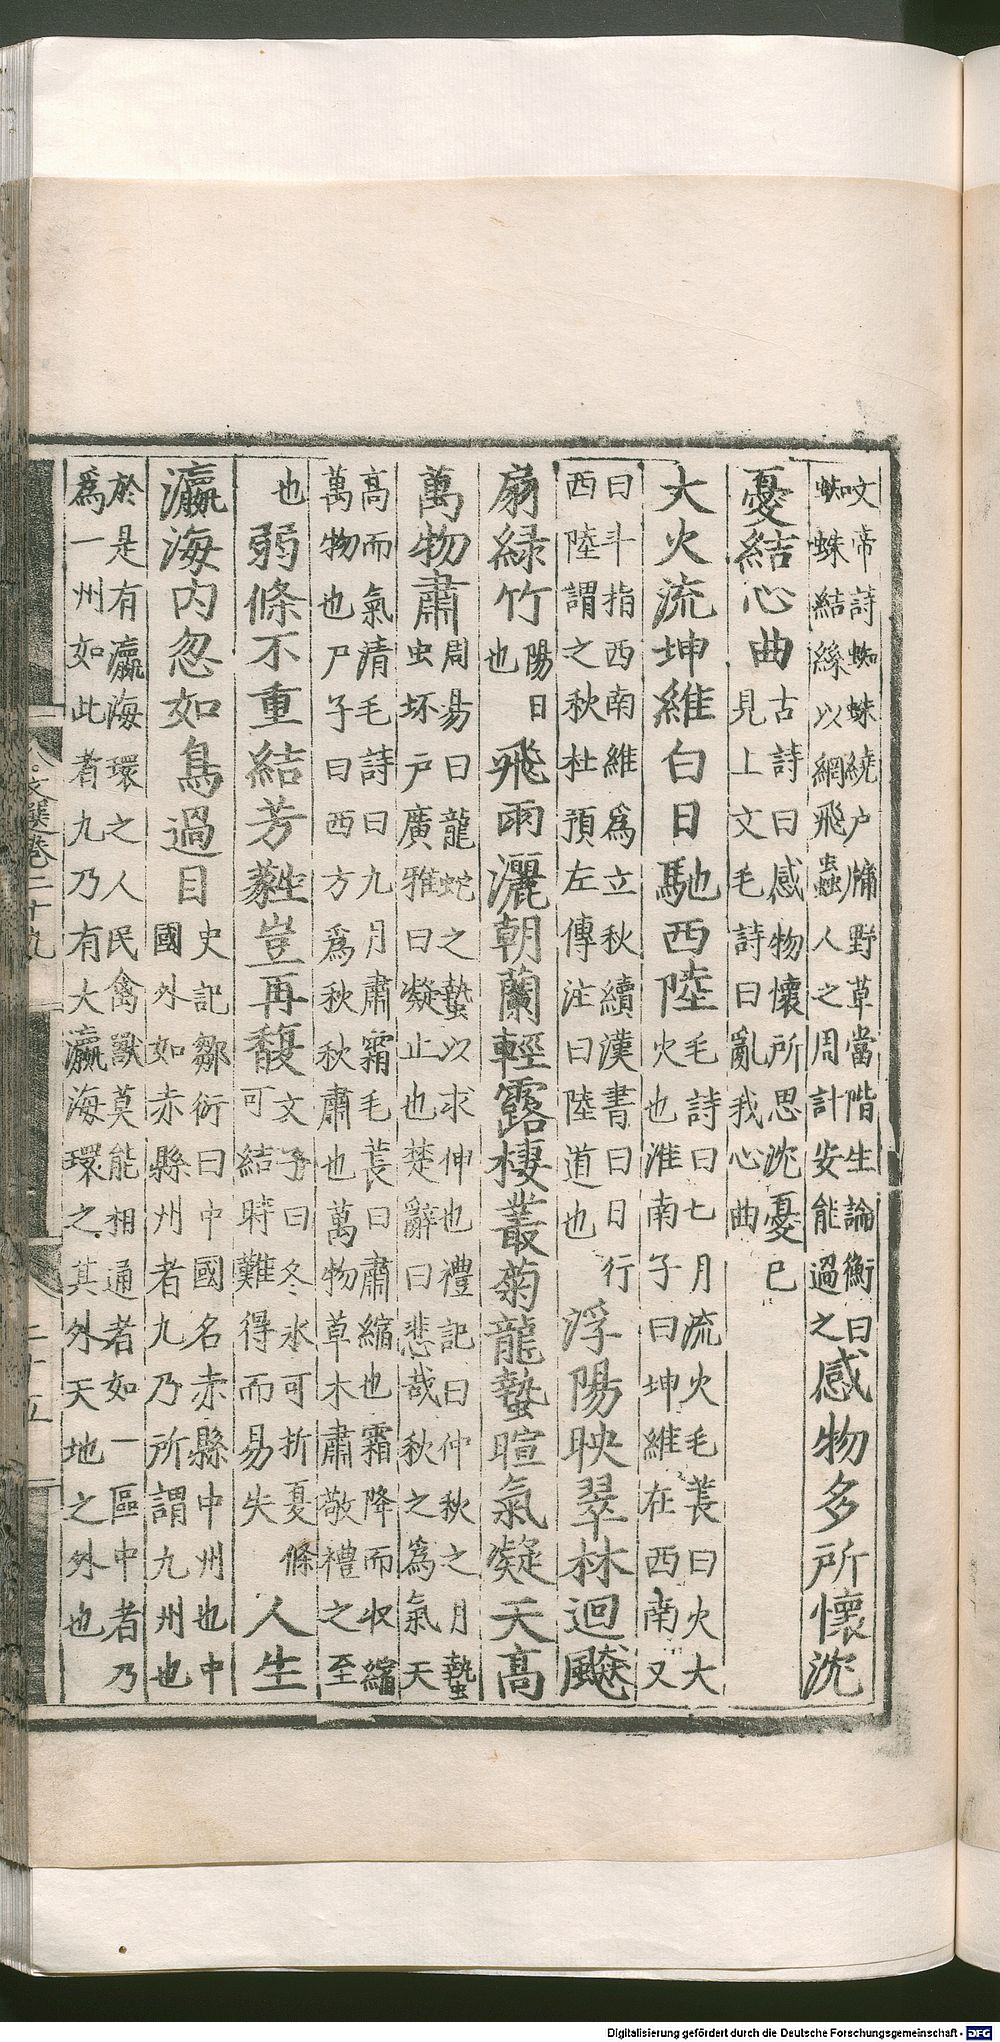 文帝詩蜘蛛繞户牗野草當階生論衡曰
蜘蛛結絲以網飛蟲人之周計安能過之
感物多所懷沈
憂結心曲
古詩曰感物懷所思沈憂已
見上文毛詩曰亂我心曲
大火流坤維白日馳西陸
毛詩曰七月流火毛萇曰火大
火也淮南子曰坤維在西南又
曰斗指西南維爲立秋續漢書曰日行
西陸謂之秋杜預左傳注曰陸道也
浮陽映翠林迴飈
扇緑竹
陽日
也
飛雨灑朝蘭輕露棲叢菊龍蟄暄氣凝天高
萬物肅
周易曰龍蛇之蟄以求伸也禮記曰仲秋之月蟄
虫坏户廣雅曰凝止也楚辭曰悲哉秋之爲氣天
高而氣清毛詩曰九月肅霜毛萇曰肅縮也霜降而収縮
萬物也尸子曰西方爲秋秋肅也萬物草木肅敬禮之至
也
弱條不重結芳蕤豈再馥
文子曰冬冰可折夏條
可結時難得而易失
人生
瀛海内忽如鳥過目
史記鄒衍曰中國名赤縣中州也中
國外如赤縣州者九乃所謂九州也
於是有瀛海環之人民禽獸莫能相通者如一區中者乃
爲一州如此者九乃有大瀛海環之其外天地之外也
文選卷二十九
二十五
Digitalisierung gefördert durch die Deutsche Forschungsgemeinschaft - DFG